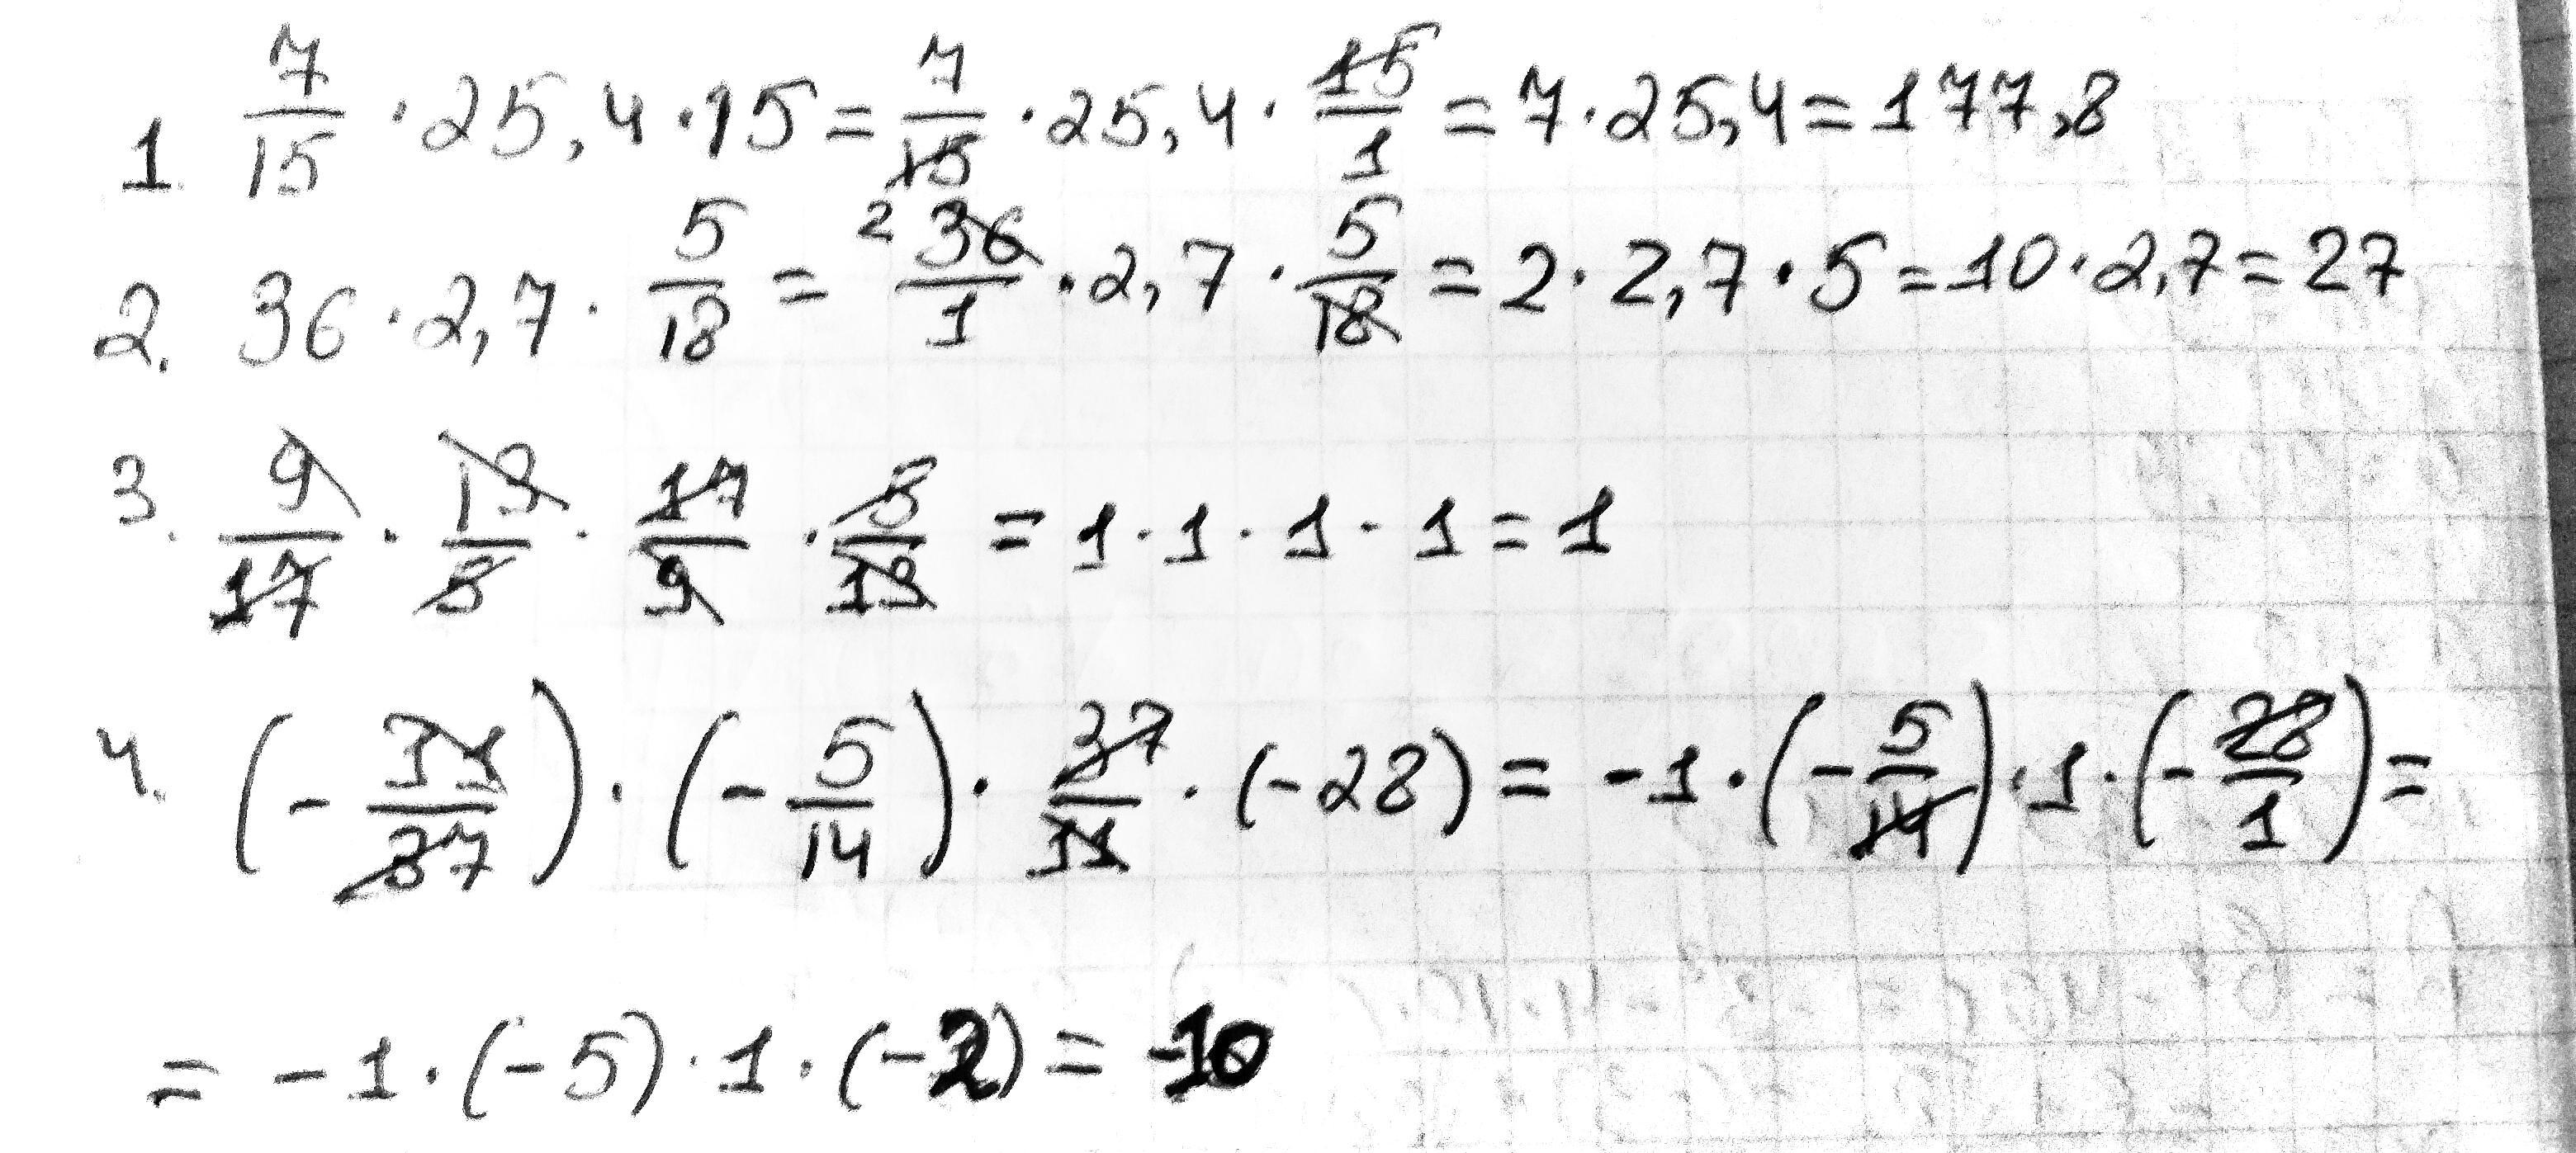 1. 7/15 · 25,4 · 15 = 7/15 · 25,4 · 15/1 = 7 · 25,4 = 177,8
2. 36 · 2,7 · 5/18 = 2 36/1 · 2,7 · 5/18 = 2 · 2,7 · 5 = 10 · 2,7 = 27
3. 9/17 · 13/8 · 17/9 · 8/13 = 1 · 1 · 1 · 1 = 1
4. (- 31/37) · (- 5/14) · 37/31 · (-28) = -1 · (- 5/14) · 1 · (- 28/1) =
= -1 · (-5) · 1 · (-2) = -10